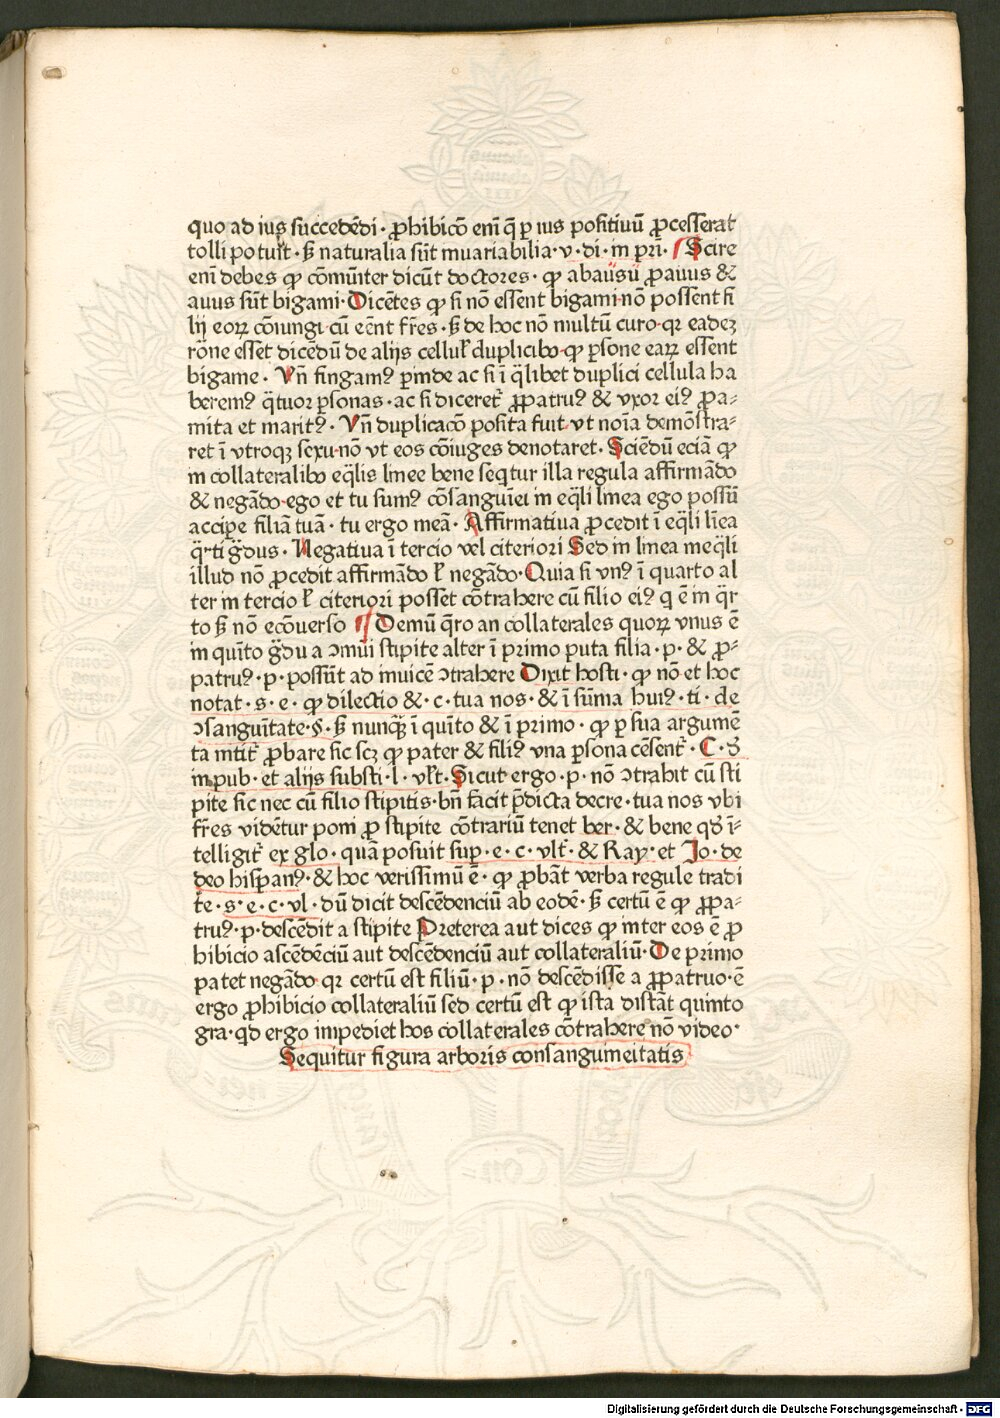 quo ad ius succedēdi · ꝓhibicō eni᷒ q̄ ꝑ ius positivū ꝓcesserat
tolli potuit · sꝫ naturalia sūt inuariabilia · v · di · in pri᷒ · Scire
eni᷒ debes ꝙ cōmūiter dicūt doctores · ꝙ abauus ꝓauus &
auus sūt bigami · Dicētes ꝙ si nō essent bigami nō possent fi
lij eoꝝ cōiungi cū eēnt fr̄es · sꝫ de hoc nō multū curo · qꝛ eadeꝫ
rōne esset dicēdū de alijs cellul̓ duplicibꝰ ꝙ ꝑsone eaꝝ essent
bigame · Vn̄ fingamꝰ ꝑinde ac si ī q̄libet duplici cellula ha
beremꝰ q̄tuor ꝑsonas · ac si diceret̄ ꝓpatruꝰ & vxor eiꝰ ꝓa⸗
mita et maritꝰ · Vn̄ duplicacō posita fuit · vt noīa demōstra⸗
ret ī vtroqꝫ sexu · nō vt eos cōiuges denotaret · Sciēdū eciā ꝙ
in collateralibꝰ eq̄lis linee bene seq̄tur illa regula affirmādo
& negādo · ego et tu sumꝰ cōsanguīei in eq̄li linea ego possū
accipe filiā tuā · tu ergo meā · Affirmatiua ꝓcedit ī eq̄li līea
q̄rti g̊dus · Negatiua ī tercio vel citeriori Sed in linea ineq̄li
illud nō ꝓcedit affirmādo l̓ negādo · Quia si vnꝰ ī quarto al
ter in tercio l̓ citeriori posset cōtrahere cū filio eiꝰ q ē in q̄r
to sꝫ nō ecōuerso Demū q̄ro an collaterales quoꝝ vnus ē
in quīto g̊du a ꝯmūi stipite alter ī primo puta filia · p · & ꝓ⸗
patruꝰ · p · possūt ad inuicē ꝯtrahere Dixit hosti · ꝙ nō et hoc
notat · s · e · ꝙ dilectio & · c · tua nos · & ī sūma huiꝰ · ti · de
ꝯsanguītate · §· sꝫ nunqͣꝫ ī quīto & ī primo · ꝙ ꝑ sua argumē
ta intit̄ ꝓbare sic scꝫ ꝙ pater & filiꝰ vna ꝑsona cēsent̄ · C · đ
inpub · et alijs substi · l · vl̄t · Sicut ergo · p · nō ꝯtrahit cū sti
pite sic nec cū filio stipitis · bn̄ facit p̄dicta decre · tua nos vbi
fr̄es vidētur poni ꝓ stipite cōtrariū tenet ber · & bene qđ ī⸗
telligit̄ ex glo · quā posuit sup · e · c · vl̄t · & Ray · et Jo · de
deo hispanꝰ · & hoc verissimū ē · ꝙ ꝓbāt verba regule tradi
te · s · e · c · vl · dū dicit descēdenciū ab eodē · sꝫ certū ē ꝙ ꝓpa⸗
truꝰ · p · descēdit a stipite Preterea aut dices ꝙ inter eos ē ꝓ
hibicio ascēdēciū aut descēdenciū aut collateraliū · De primo
patet negādo · qꝛ certū est filiū · p · nō descēdisse a ꝓpatruo · ē
ergo ꝓhibicio collateraliū sed certū est ꝙ ista distāt quinto
gra · qđ ergo impediet hos collaterales cōtrahere nō video ·
Sequitur figura arboris consanguineitatis
Digitalisierung gefördert durch die Deutsche Forschungsgemeinschaft - DFG